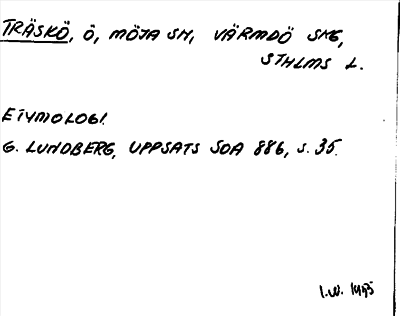 TRÄSKÖ, Ö, MÖJA SN, VÄRMDÖ SKG,
STHLMS L.
ETYMOLOGI.
G. LUNDBERG, UPPSATS SOA 886, S. 35.
I.W. 1995